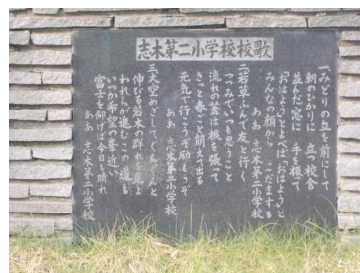 志木第二小学校校歌
一みどりの丘を前にして
朝のひかりに 立つ校舎
並んだ窓に 手を振って
おはようとよべば おはようと
みんなの顔から こだまする
ああ 志木第二小学校
二若草ふんで友と行く
つつみでいつも思うこと
流れの葦は根を張って
きっと春ごと萌えて出る
元気で行こう励もうぞ
ああ 志木第二小学校
三大空めざしてぐんぐんと
伸びる若木の群れを見よ
われらが進むこの道も
いつか希望の峯近い
富士を仰げば今日も晴れ
ああ 志木第二小学校